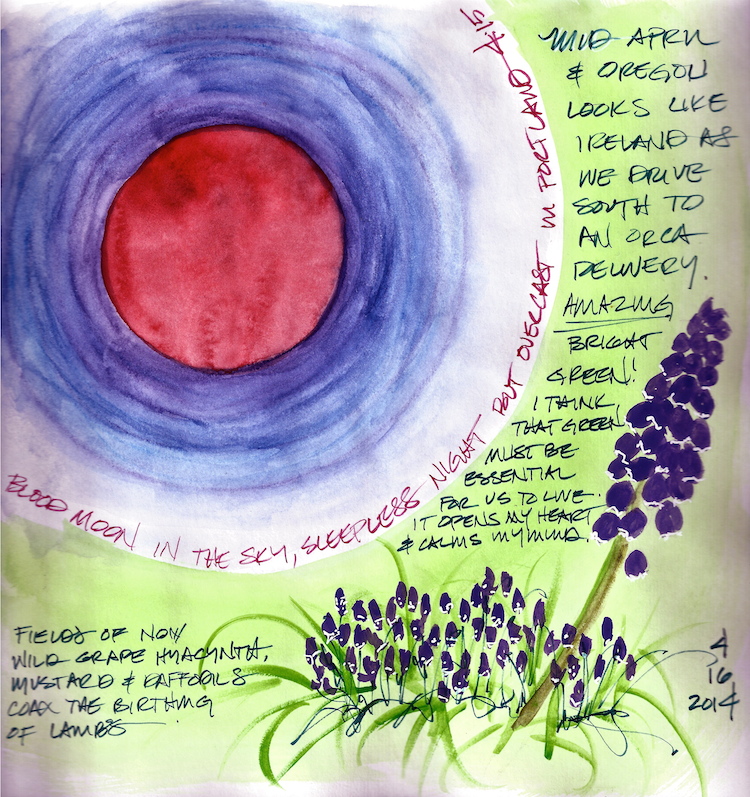 BLOOD MOON IN THE SKY, SLEEPLESS NIGHT BUT OVERCAST IN PORTLAND 4.15
MID APRIL
& OREGON
LOOKS LIKE
IRELAND AS
WE DRIVE
SOUTH TO
AN ORCA
DELIVERY.
AMAZING
BRIGHT
GREEN!
I THINK
THAT GREEN
MUST BE
ESSENTIAL
FOR US TO LIVE.
IT OPENS MY HEART
& CALMS MY MIND.
FIELDS OF NOW
WILD GRAPE HYACYNTH,
MUSTARD & DAFFODILS
COAX THE BIRTHING
OF LAMBS
4
16
2014